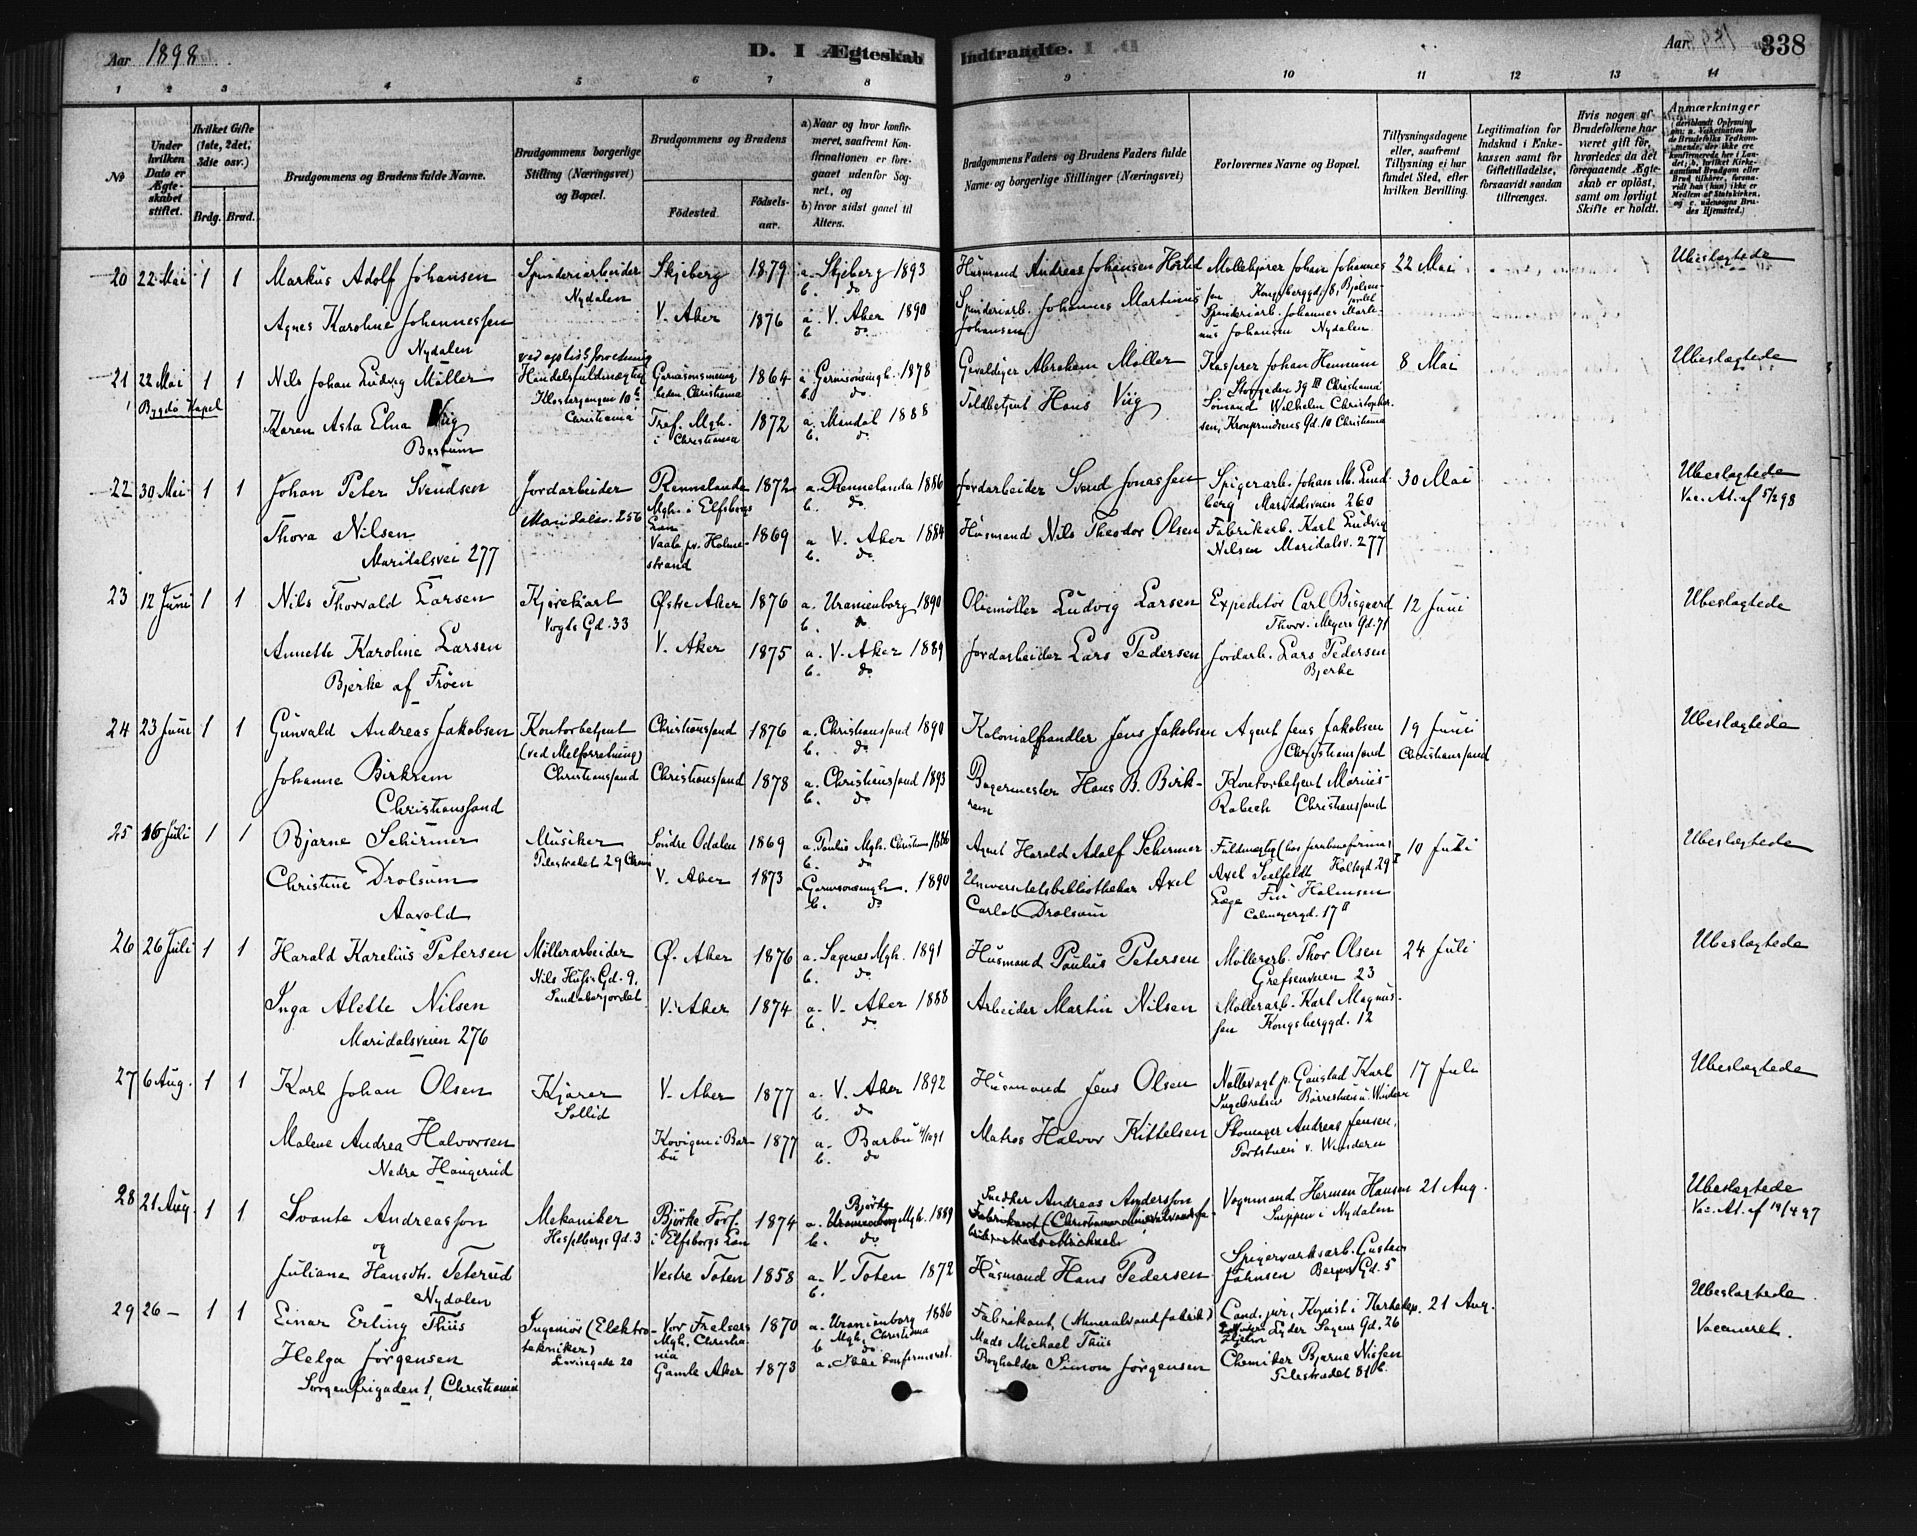 Aar 1898
D. I Ægteskab Indtraadte.
Aar
338
1 2 3 4 5 6 7 8 9 10 11 12 13 14
No
Under hvilken Dato er Ægteskabet stiftet.
Hvilket Gifte (1ste, 2det, 3die osv.)
Brdg. Brud.
Brudgommens og Brudens fulde Navne.
Brudgommens borgerlige Stilling (Næringsvei) og Bopæl.
Brudgommens og Brudens
Födested.
Födsels-aar.
a) Naar og hvor konfirmeret, saafremt Konfirmationen er foregaaet udenfor Sognet, og
b) hvor sidst gaaet til Alters.
Brudgommens Faders og Brudens Faders fulde Navne og borgerlige Stillinger (Næringsvei)
Forlovernes Navne og Bopæl.
Tillysningsdagene eller, saafremt Tillysning ei har fundet Sted, efter hvilken Bevilling.
Legitimation for Indskud i Enkekassen samt for Giftetilladelse, forsaavidt saadan tiltrænges.
Hvis nogen af Brudefolkene har været gift før, hvorledes da det foregaaende Ægteskab er opløst, samt om lovligt Skifte er holdt.
Anmærkninger
20 22 Mai 1 1 Markus Adolf Johansen
Spinderiarbeider Nydalen
Skjeberg 1879 a. Skjeberg 1893
b. do
Husmand Andreas Johansen
Møllekjører Johan Johannessen Kongsberggd. 8,
22 Mai
Ubeslægtede
Agnes Karoline Johannessen
Nydalen
V. Aker 1876 a. V. Aker 1890
b. do
Spinderiarb. Johannes Martinius Johansen
Spinderiarb. Johannes Martinius Johansen Nydalen
21 22 Mai 1 1 Nils Johan Ludvig Møller
Bygdö Kapel
Handelsfuldmægtig
Klostergangen 10
Christiania
Garnisonsmenigheden, Christiania 1864 a. Garnisonsmgh. 1878
b. do
Gevaldiger Abraham Møller
Kasserer Johan Hennum
Storgaden 39 III Christiania
8 Mai
Ubeslægtede
Karen Asta Elna Viig
Bestum
Tref. Mgh. i Christiania 1872 a. Mandal 1888
b. do
Toldbetjent Hans Viig
Sømand Wilhelm Christophersen, Kronprindsens Gd. 10 Christiania
22 30 Mai 1 1 Johan Peter Svendsen
Jordarbeider
Maridalsv. 256
Rennelanda Mgh. i Elfsborgs Län 1872 a. Rennelanda 1886
b. do
Jordarbeider Svend Jonassen
Spigerarb. Johan M. Lundberg Maridalsveien 260
30 Mai
Ubeslægtede
Vac. At. af 5/2 98
Thora Nilsen
Maridalsvei 277
Vaale pr. Holmestrand 1869 a V. Aker 1884
b. do
Husmand Nils Theodor Olsen
Fabrikarb. Karl Ludvig Nilsen Maridalsv. 277
23 12 Juni 1 1 Nils Thorvald Larsen
Kjørekarl
Vogts Gd. 33
Østre Aker 1876 a. Uranienborg 1890
b. do
Oliemøller Ludvig Larsen
Expeditør Carl Bisgaard
Thorv. Meyers Gd. 71
12 Juni
Ubeslægtede
Annette Karoline Larsen
Bjerke af Frøen
V. Aker 1875 a. V. Aker 1889
b. do
Jordarbeider Lars Pedersen
Jordarb. Lars Pedersen
Bjerke
24 23 Juni 1 1 Gunvald Andreas Jakobsen
Kontorbetjent
(ved Melforretning)
Christianssand
Christianssand 1876 a. Christianssand 1890
b. do
Kolonialhandler Jens Jakobsen
Agent Jens Jakobsen
Christianssand
19 Juni
Christianssand
Ubeslægtede
Johanne Birkrem
Christianssand
Christianssand 1878 a. Christianssand 1893
b. do
Bagermester Hans B. Birkrem
Kontorbetjent Marius Robech Christianssand
25 16 Juli 1 1 Bjarne Schirmer
Musiker
Pilestrædet 29 Chra
Søndre Odalen 1869 a. Paulus Mgh. Christiania 1886
b. do
Agent Harald Adolf Schirmer
Axel Seelfeldt Holtegd 29 I
10 Juli
Ubeslægtede
Christine Drolsum
Aavold
V. Aker 1873 a. Garnisonsmgh. 1890
b. do
Universitetsbibliothekar Axel Carlot Drolsum
Læge Fin Holmsen
Calmeyergd. 17 II
26 26 Juli 1 1 Harald Karelius Petersen
Møllerarbeider
Nils Husis Gd. 9,
Sandakerjordet
Ø. Aker 1876 a. Sagenes Mgh. 1891
b. do
Husmand Paulus Petersen
Møllerarb. Thor Olsen
Grefsenveien 23
24 Juli
Ubeslægtede
Inga Alette Nilsen
Maridalsveien 276
V. Aker 1874 a. V. Aker 1888
b. do
Arbeider Martin Nilsen
Møllerarb. Karl Magnussen Kongsberggd. 12
27 6 Aug. 1 1 Karl Johan Olsen
Kjører
Sollid
V. Aker 1877 a. V. Aker 1892
b. do
Husmand Jens Olsen
Nattevagt p. Gaustad Karl Ingebretsen Børrestuen v. Vinderen
17 Juli
Ubeslægtede
Malene Andrea Halvorsen
Nedre Haugerud
Kovigen i Barbu 1877 a. Barbu 4/10 91
b. do
Matros Halvor Kittelsen
Skomager Andreas Jensen,
Portstuen v. Vinderen
28 21 Aug. 1 1 Svante Andreasson
og
Mekaniker
Hesselbergs Gd. 3
Björke Fors. i Elfsborgs Län 1874 a. Björke Mgh. 1889
b. do
Snedker Andreas Andersson
Vognmand Herman Hansen
Snippen i Nydalen
21 Aug.
Ubeslægtede
Vac. At. af 19/4 97
Juliane Hansdtr. Teterud
Nydalen
Vestre Toten 1858 a. V. Toten 1872
b.
Husmand Hans Pedersen
Spigerværksarb. Gustav Johnsen Bergver Gd. 5
29 26 — 1 1 Einar Erling Thiis
Ingeniør (Elektrotekniker)
Lovisegade 20
Vor Frelsers Mgh. Christiania 1870 a. Uranienborg Mgh. Christiania 1886
b. do
Fabrikant (Mineralvandfabrik)
Mads Michael Thiis
Cand. jur.
Lyder Sagens Gd. 26
21 Aug.
Ubeslægtede
Vaccineret.
Helga Jørgensen
Sorgenfrigaden 1, Christiania
Gamle Aker 1873 a. Ikke konfirmeret.
Bogholder Simon Jørgensen
Chemiker Bjarne Nissen
Pilestrædet 81 b.